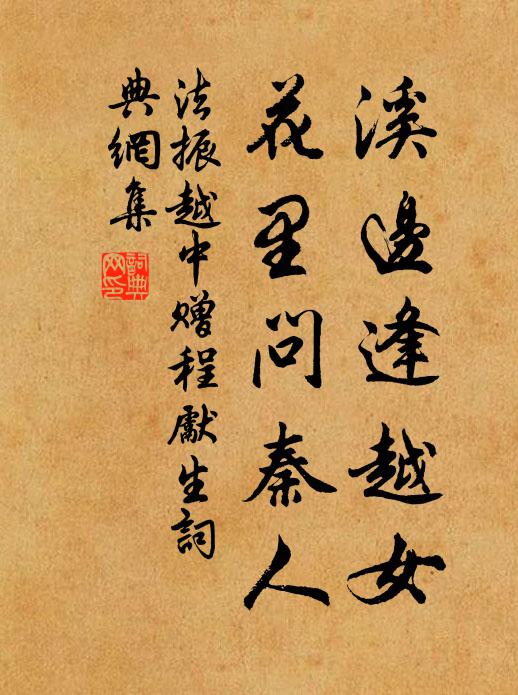 溪邊逢越女
花里問秦人
法振越中贈程獻生詞
典網集
詞典
网印